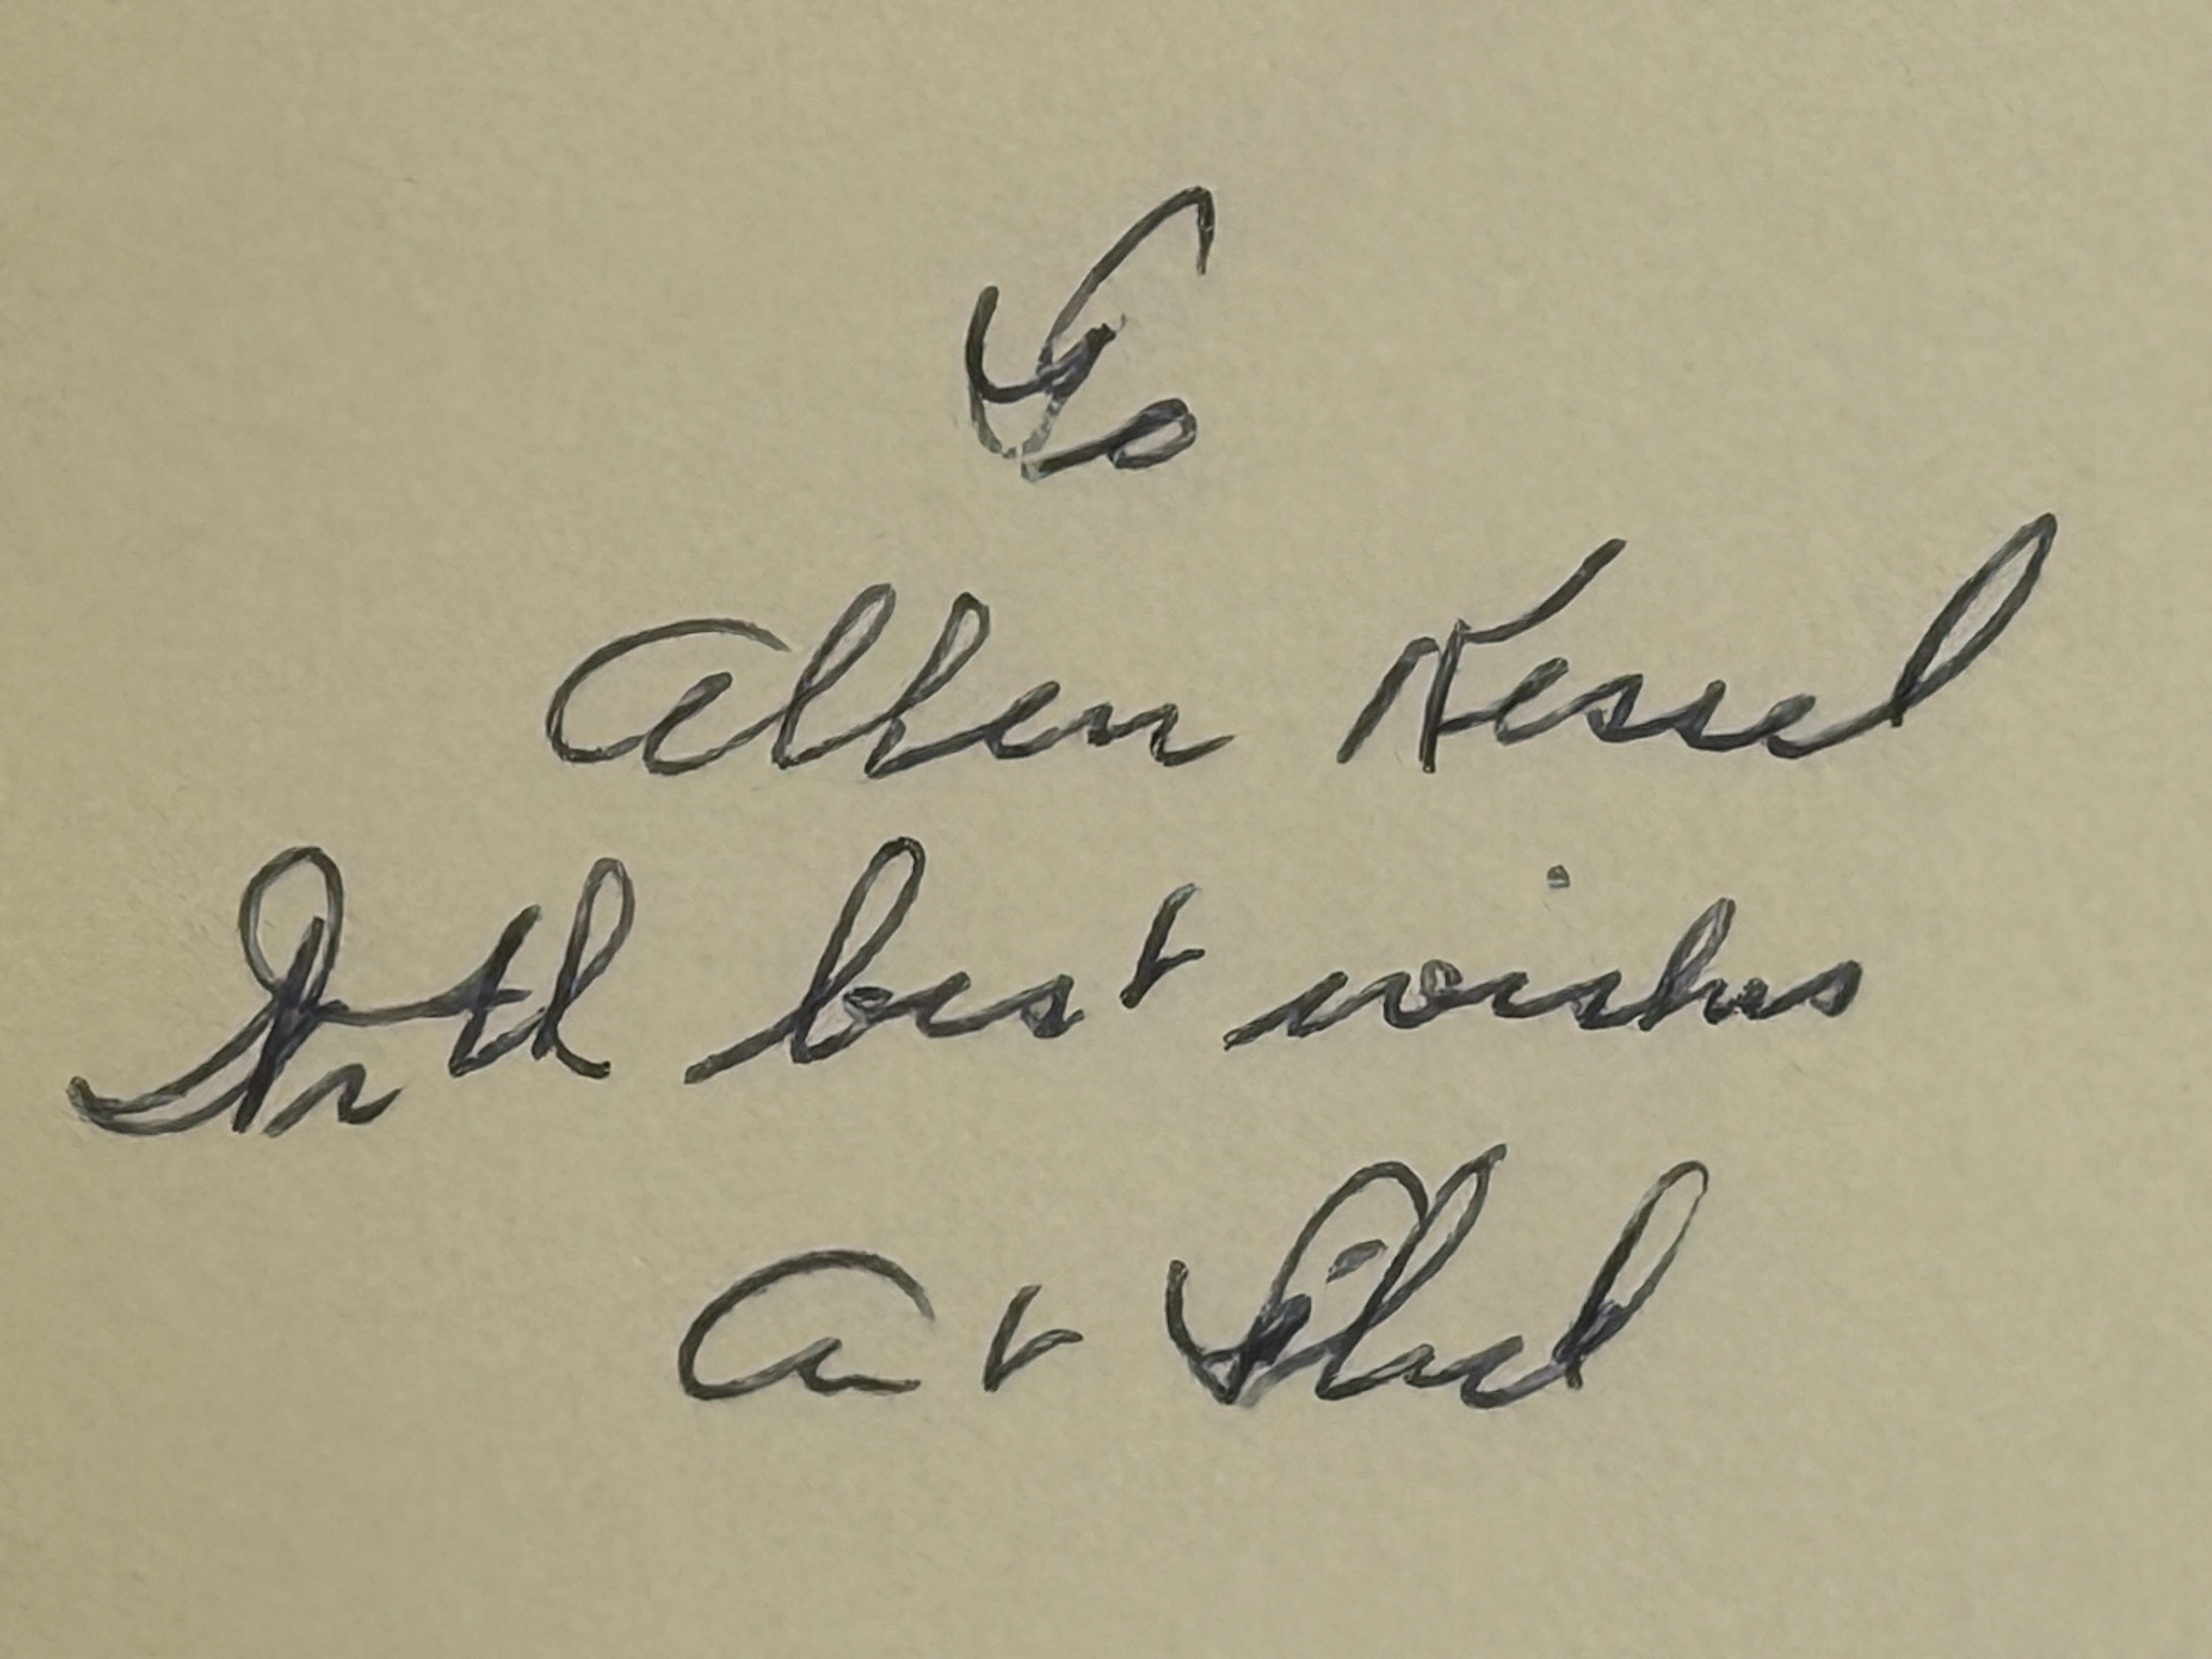 To
Allen Kessel
With best wishes
Art